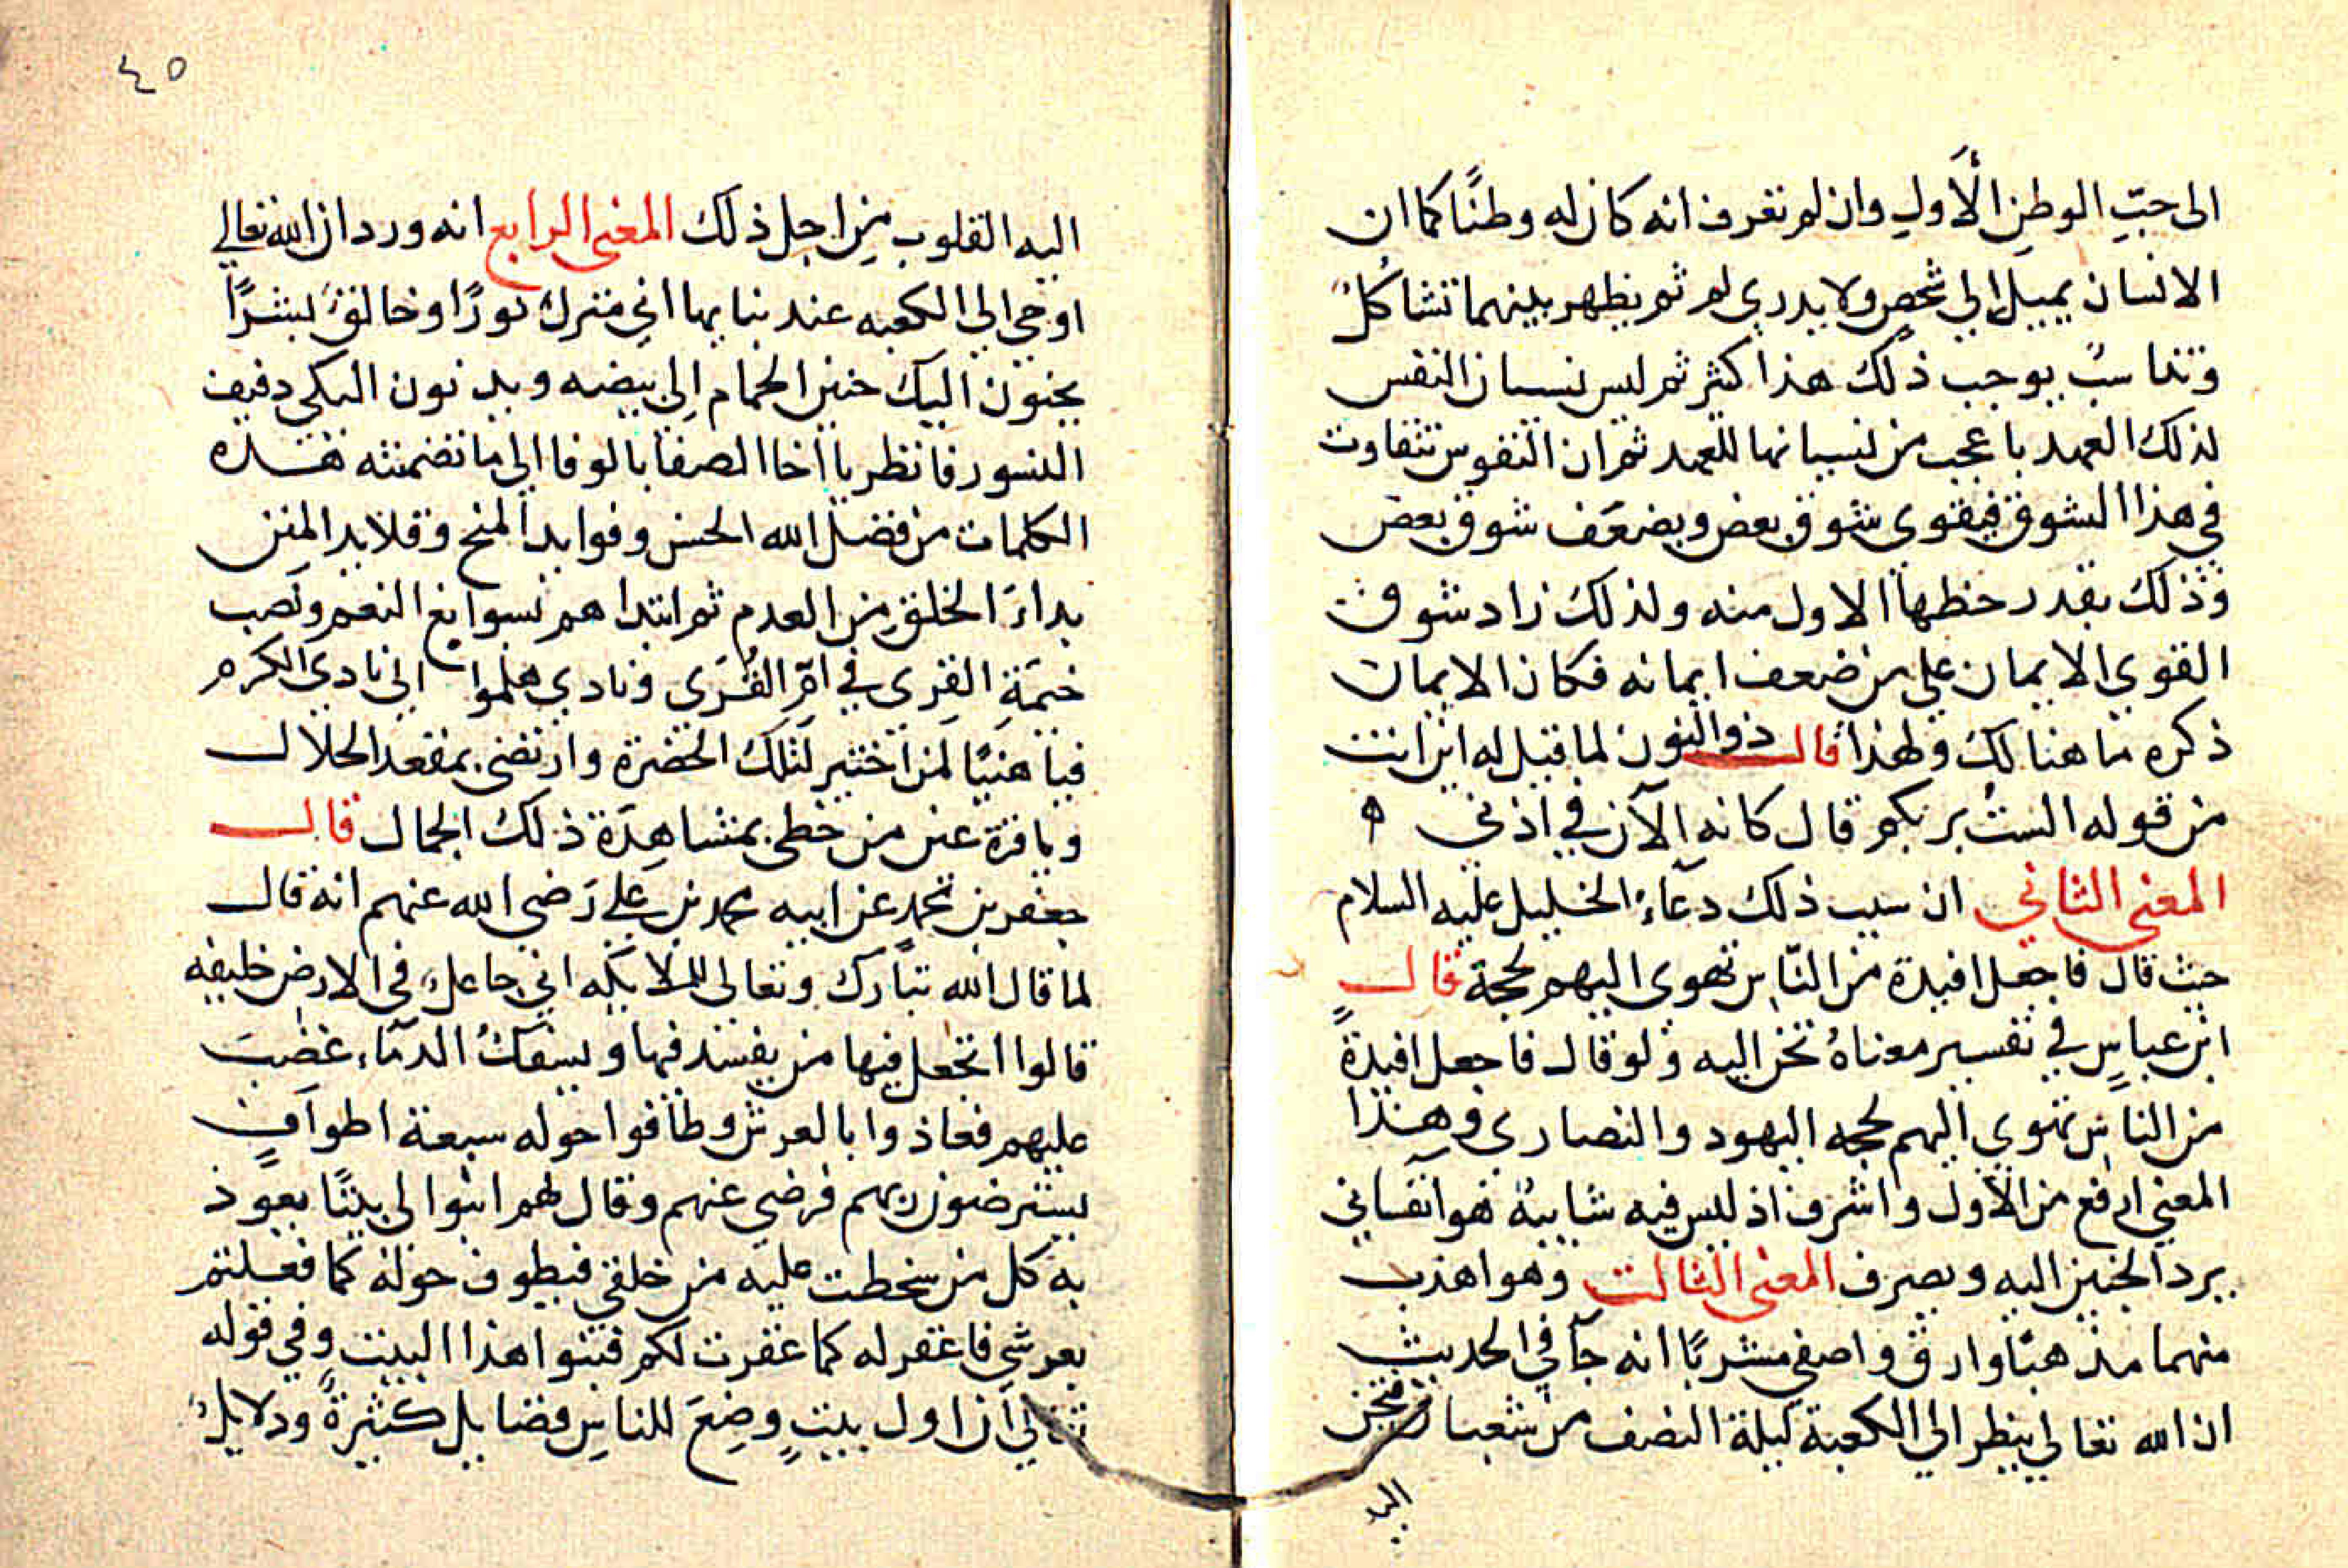 الى حبّ الوطن الأول وان لم تعرف انه كان له وطنًا كما ان
الانسان يميل الى شخص ولا يدري لم ثم يظهر بينهما تشاكلٌ
وتناسبٌ يوجب ذلك هذا كثر ثم ليس نسيان النفس
لذلك العهد باعجب من نسيانها للعهد ثم ان النفوس تتفاوت
في هذا الشوق فيقوى شوق بعض ويضعف شوق بعض
وذلك بقدر حظها الاول منه ولذلك زاد شوق
القوي الايمان على من ضعف ايمانه فكان الايمان
ذكره ما هنالك ولهذا قال ذو النون لما قيل له اين انت
من قوله الست بربكم قال كانه الآن في اذني
المعنى الثاني ان سبب ذلك دعاء الخليل عليه السلام
حيث قال فاجعل افيدة من الناس تهوى اليهم لحجة قال
ابن عباس في تفسير معناه تحن اليه ولو قال فاجعل افيدة
من الناس تهوى اليهم لحجه اليهود والنصارى وهذا
المعنى ارفع من الأول واشرف اذ ليس فيه شايبة هوا نفساني
يرد الحنين اليه ويصرف المعنى الثالث وهو اهذب
منهما مذهبًا وارق واصفى مشربًا انه جآ في الحديث
ان الله تعالى ينظر الى الكعبة ليلة النصف من شعبان فتحن
اليه
٤٥
اليه القلوب من اجل ذلك المعنى الرابع انه ورد ان الله تعالى
اوحى الى الكعبه عند بنايها اني منزل نورًا وخالق بشرًا
يحنون اليك حنين الحمام الى بيضه ويدنون اليكي دفيف
النسور فانظر يا اخا الصفا بالوفا الى ما تضمنته هذه
الكلمات من فضل الله الحسن وفوايد المنح وقلايد المنن
بداءَ الخلق من العدم ثم ابتداهم بسوابغ النعم ونصب
خيمَةِ القِرى في امّ القُرَى ونادى هلموا الى نادي الكرم
فيا هنيًا لمن اختير لتلك الحضرة وارتضى بمقعد الجلال
ويا قرة عين من حظى بمشاهدة ذلك الجمال قال
جعفر بن محمد عن ابيه محمد بن علي رَضي الله عنهم انه قال
لما قال الله تبارك وتعالى للملايكه اني جاعلٌ في الارض خليفه
قالوا اتجعل فيها من يفسد فيها ويسفك الدمآء غضب
عليهم فعاذوا بالعرش وطافوا حوله سبعة اطوافٍ
يسترضون ربهم فرضي عنهم وقال لهم ابنوا لى بيتًا يعوذ
به كل من سخطت عليه من خلقي فيطوف حوله كما فعلتم
بعرشي فاغفر له كما غفرت لكم فبنوا هذا البيت وفي قوله
تعالى ان اول بيتٍ وضِعَ للناس فضايل كثيرةٌ ودلايلُ